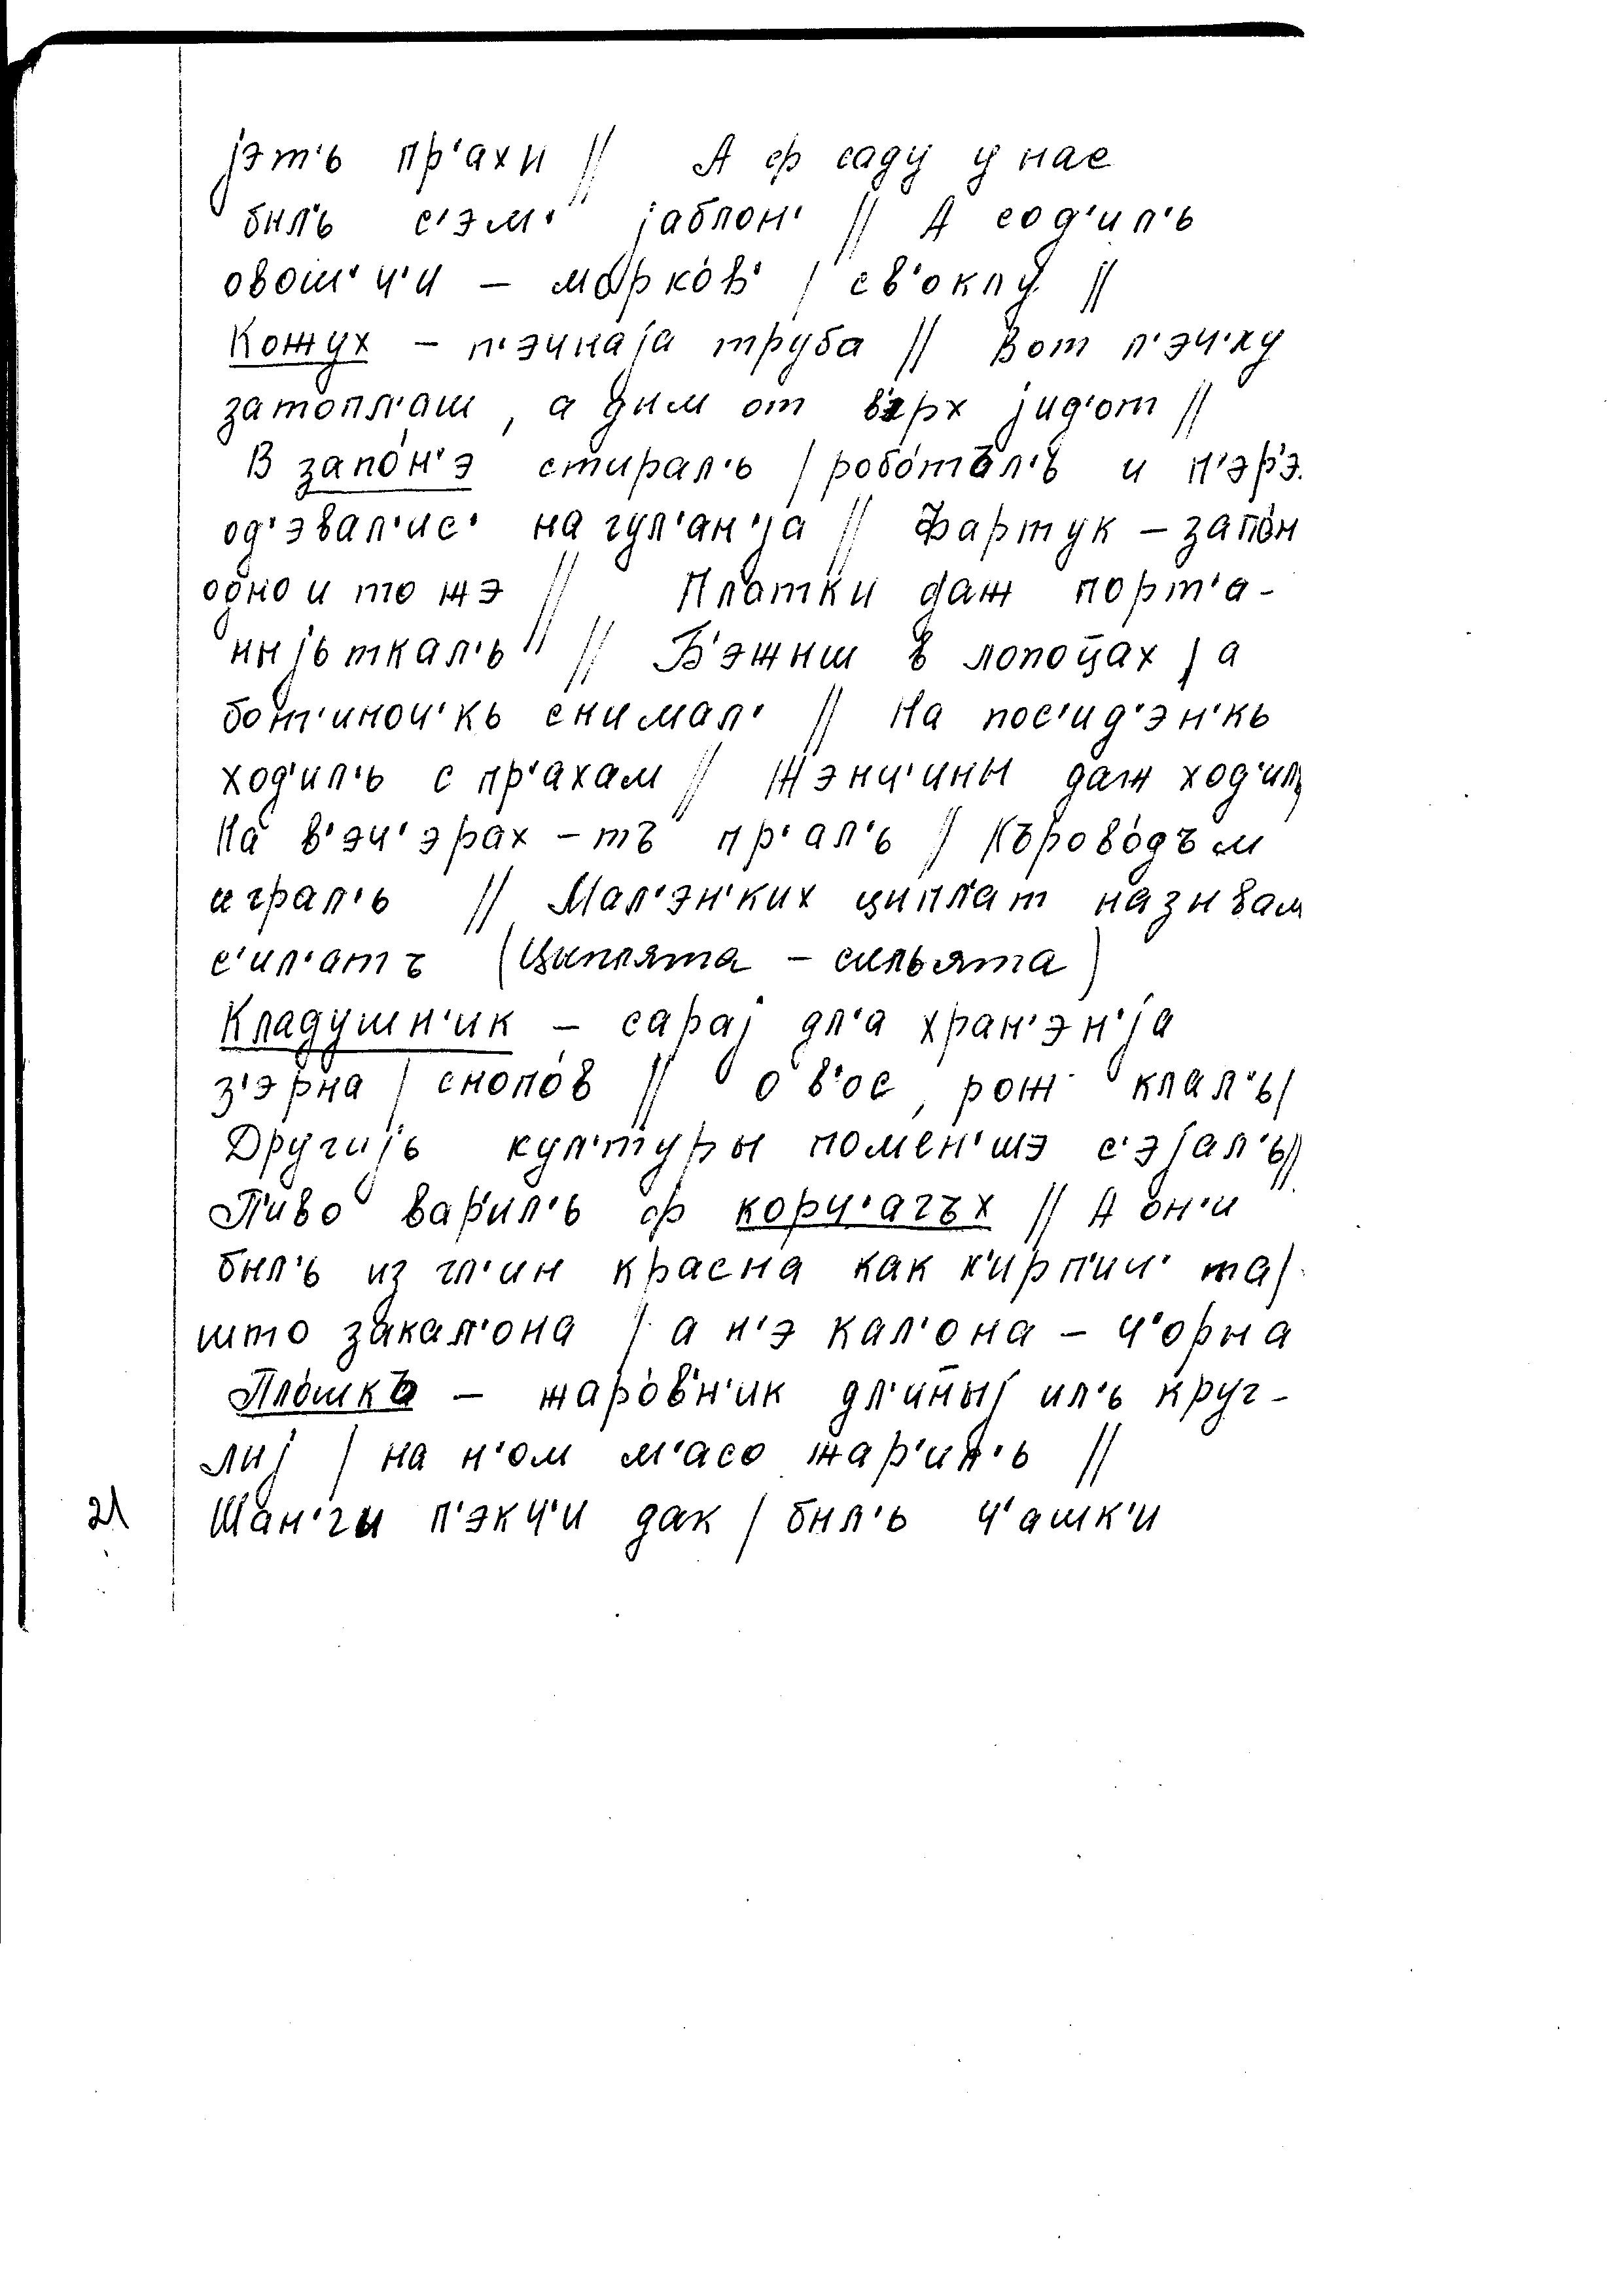 јэт'ь пр'ахи // А ф саду у нас
был'ь с'эм' јаблон' // А сод'ил'ь
овош'ч'и –морко́в' / св'оклу //
Кожух – п'эчнаја труба // Вот п'эч'ку
затопл'аш, а дым от в'эрх јид'от //
В запо́н'э стирал'ь / робо́тъл'ь и п'эр'э-
од'эвал'ис' на гул'ан'ја // Фартук – запо́н
одно и то жэ // Платки даж порт'а-
ныјь ткал'ь // Б'эжыш в лопоц̄ах / а
бот'иноч'кь снимал' // На пос'ид'эн'кь
ход'ил'ь с пр'ахам // Жэнч'ины даж ход'ил'ь
На в'эч'эрах – тъ пр'ал'ь / Къ́рово́дъм
играл'ь // Мал'эн'ких цыпл'ат называм
с'ил'атъ (Цыплята – сильята)
Кладушн'ик – сарај дл'а хран'эн'ја
з'эрна / снопо́в // ов'ос, рож клал'ь /
Другијь кул'туры помен'шэ с'эјал'ь //
П'иво вар'ил'ь ф корч'агъх // А он'и
был'ь из гл'ин красна как к'ирп'ич' та /
што закал'она / а н'э кал'она – ч'орна
Пло́шкъ – жаро́в'н'ик дл'ин̄ыј ил'ь круг-
лыј / на н'ом м'асо жар'ил'ь //
21 Шан'гы п'экч'и дак / был'ь ч'ашк'и